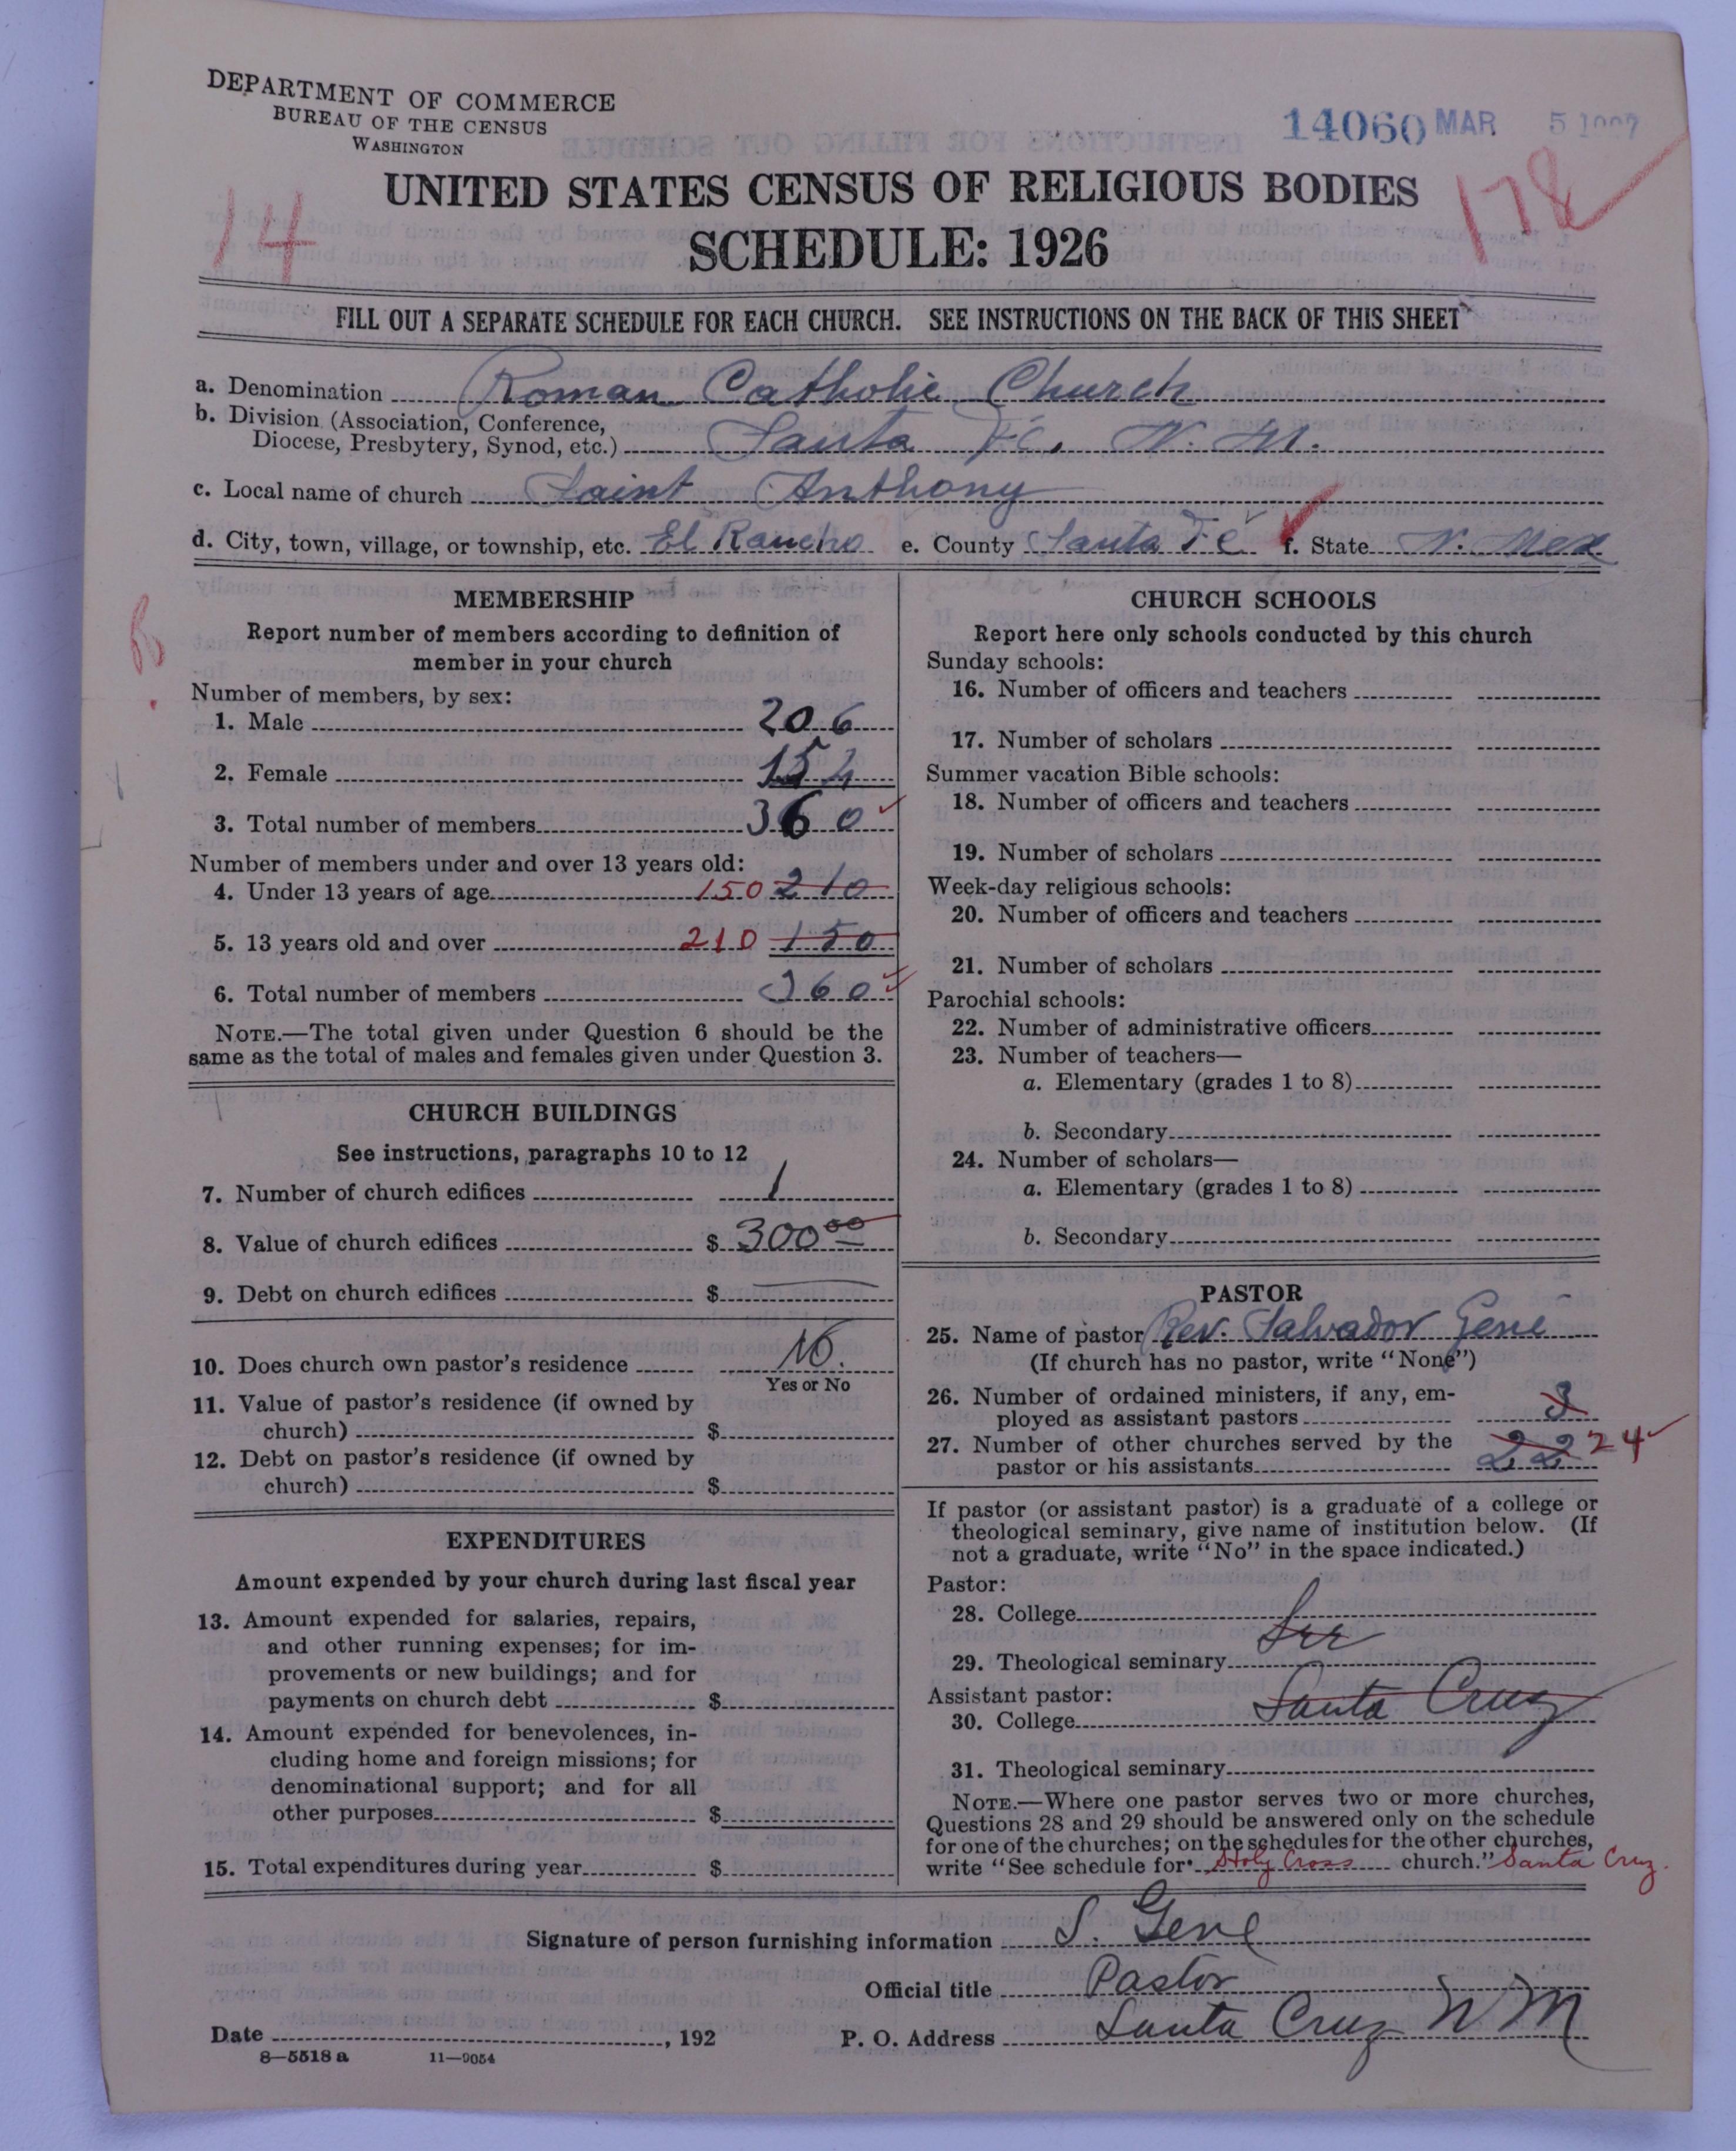 DEPARTMENT OF COMMERCE
BUREAU OF THE CENSUS
WASHINGTON
14060 MAR 5
14
178
UNITED STATES CENSUS OF RELIGIOUS BODIES
SCHEDULE: 1926
FILL OUT A SEPARATE SCHEDULE FOR EACH CHURCH. SEE INSTRUCTIONS ON THE BACK OF THIS SHEET
a. Denomination Roman Catholic Church
b. Division (Association, Conference,
Diocese, Presbytery, Synod, etc.) Santa Fé, N. M.
c. Local name of church Saint Anthony
d. City, town, village, or township, etc. El Rancho e. County Santa Fé f. State N. Mex
MEMBERSHIP
Report number of members according to definition of
member in your church
Number of members, by sex:
1. Male 206
2. Female 154
3. Total number of members 360
Number of members under and over 13 years old:
4. Under 13 years of age 150 210
5. 13 years old and over 210 150
6. Total number of members 360
NOTE.—The total given under Question 6 should be the
same as the total of males and females given under Question 3.
CHURCH BUILDINGS
See instructions, paragraphs 10 to 12
7. Number of church edifices 1
8. Value of church edifices $ 300 00
9. Debt on church edifices $
10. Does church own pastor's residence No.
Yes or No
11. Value of pastor's residence (if owned by
church) $
12. Debt on pastor's residence (if owned by
church) $
EXPENDITURES
Amount expended by your church during last fiscal year
13. Amount expended for salaries, repairs,
and other running expenses; for im-
provements or new buildings; and for
payments on church debt $
14. Amount expended for benevolences, in-
cluding home and foreign missions; for
denominational support; and for all
other purposes $
15. Total expenditures during year $
CHURCH SCHOOLS
Report here only schools conducted by this church
Sunday schools:
16. Number of officers and teachers
17. Number of scholars
Summer vacation Bible schools:
18. Number of officers and teachers
19. Number of scholars
Week-day religious schools:
20. Number of officers and teachers
21. Number of scholars
Parochial schools:
22. Number of administrative officers
23. Number of teachers—
a. Elementary (grades 1 to 8)
b. Secondary
24. Number of scholars—
a. Elementary (grades 1 to 8)
b. Secondary
PASTOR
25. Name of pastor Rev. Salvador Gene
(If church has no pastor, write "None")
26. Number of ordained ministers, if any, em-
ployed as assistant pastors 3
27. Number of other churches served by the
pastor or his assistants 22 24
If pastor (or assistant pastor) is a graduate of a college or
theological seminary, give name of institution below. (If
not a graduate, write "No" in the space indicated.)
Pastor:
28. College
See
29. Theological seminary
Assistant pastor:
30. College Santa Cruz
31. Theological seminary
NOTE.—Where one pastor serves two or more churches,
Questions 28 and 29 should be answered only on the schedule
for one of the churches; on the schedules for the other churches,
write "See schedule for Holy Cross church." Santa Cruz.
Signature of person furnishing information S. Gene
Official title Pastor
Date , 192 P. O. Address Santa Cruz N M
8—5518 a 11—9054